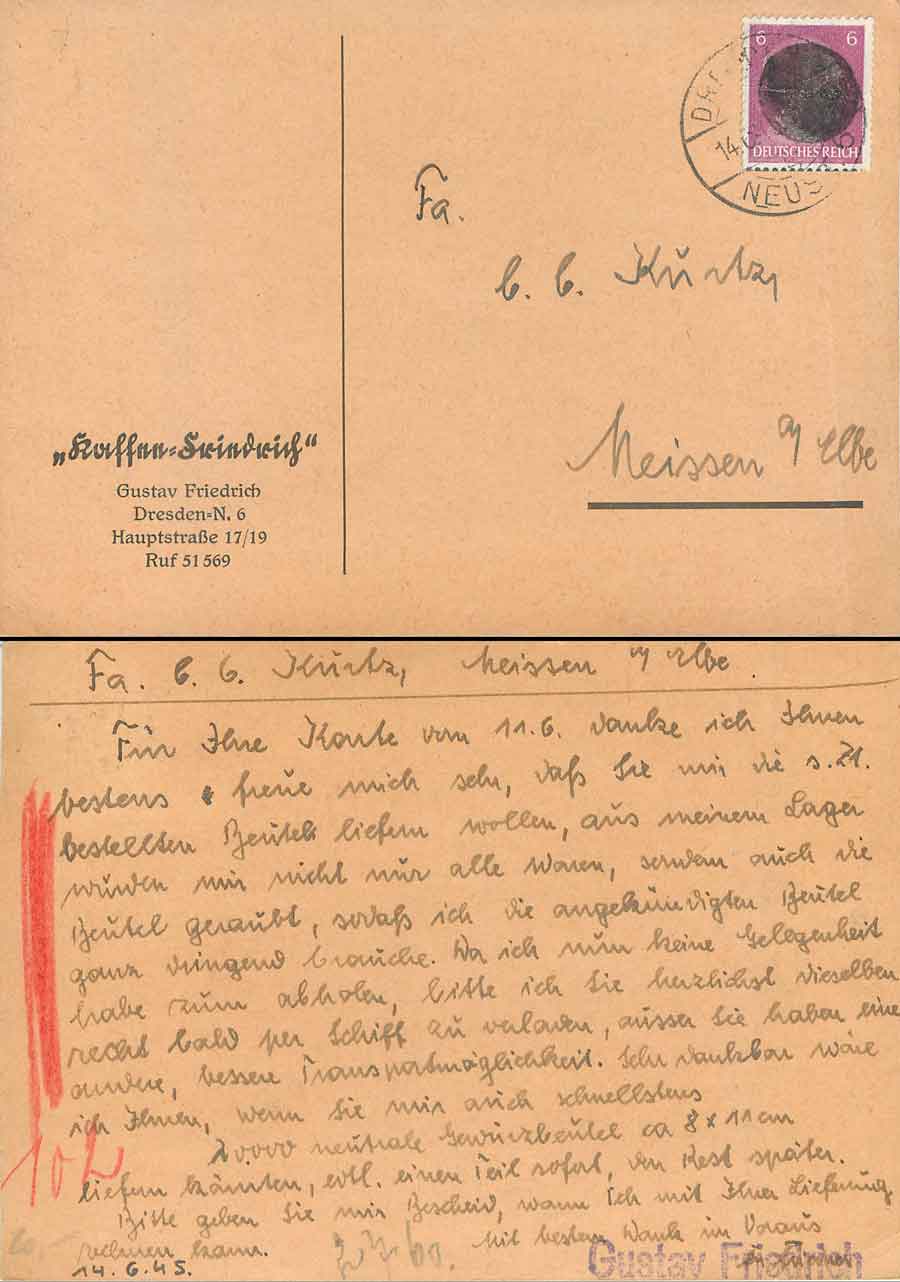 DRE
14.6
NEUS
6 6
DEUTSCHES REICH
Fa.
C. G. Kurtz,
Meissen a/ Elbe
„Kaffee-Friedrich“
Gustav Friedrich
Dresden-N. 6
Hauptstraße 17/19
Ruf 51 569
Fa. C. G. Kurtz, Meissen a/ Elbe.
Für Ihre Karte vom 11.6. danke ich Ihnen
bestens freue mich sehr, daß Sie mir die s. Zt.
bestellten Beutel liefern wollen, aus meinem Lager
wurden mir nicht nur alle Waren, sondern auch die
Beutel geraubt, sodaß ich die angekündigten Beutel
ganz dringend brauche. Da ich nun keine Gelegenheit
habe zum abholen, bitte ich Sie herzlichst dieselben
recht bald per Schiff zu verladen, ausser Sie haben eine
andere, bessere Transportmöglichkeit. Sehr dankbar wäre
ich Ihnen, wenn Sie mir auch schnellstens
neutrale Gewürzbeutel ca 8 x 11 cm
liefern könnten, evtl. einen Teil sofort, den Rest später.
Bitte geben Sie mir Bescheid, wann ich mit Ihrer Lieferung
rechnen kann. Mit bestem Dank im Voraus
14.6.45. Gustav Friedrich
102